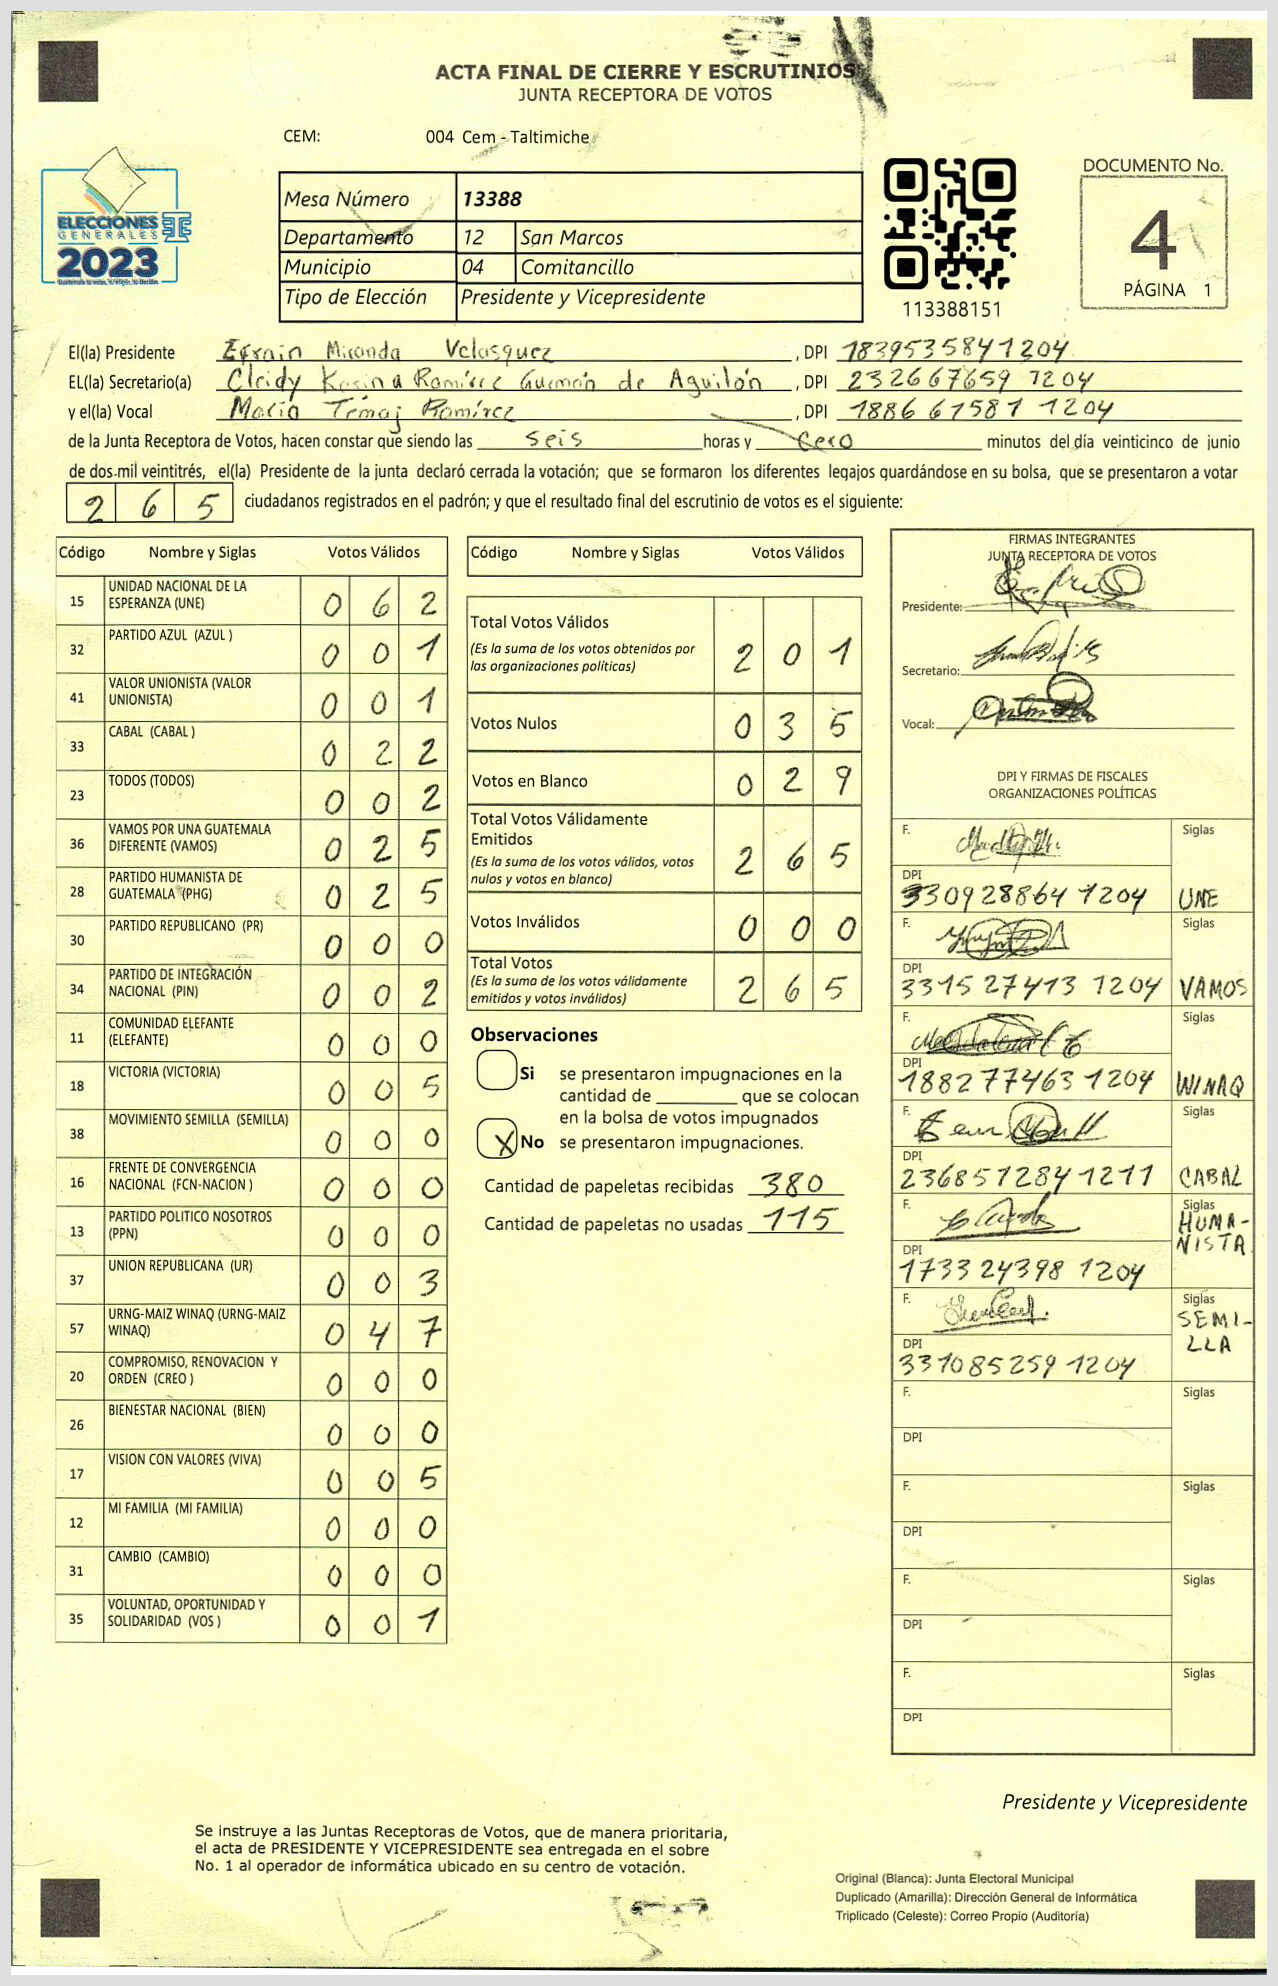 ACTA FINAL DE CIERRE Y ESCRUTINIOS
JUNTA RECEPTORA DE VOTOS
CEM: 004 Cem - Taltimiche
ELECCIONES
GENERALES
2023
Mesa Número 13388
Departamento 12 San Marcos
Municipio 04 Comitancillo
Tipo de Elección Presidente y Vicepresidente
113388151
DOCUMENTO No.
4
PÁGINA 1
El(la) Presidente Efrain Miranda Velasquez, DPI 1839535841204
EL(la) Secretario(a) Cleidy Karina Ramírez Guzmán de Aguilón, DPI 232667659 1204
y el(la) Vocal Maria Temaj Ramírez, DPI 188667581 1204
de la Junta Receptora de Votos, hacen constar que siendo las seis horas y cero minutos del día veinticinco de junio
de dos mil veintitrés, el(la) Presidente de la junta declaró cerrada la votación; que se formaron los diferentes legajos guardándose en su bolsa, que se presentaron a votar
265 ciudadanos registrados en el padrón; y que el resultado final del escrutinio de votos es el siguiente:
Código Nombre y Siglas Votos Válidos
15 UNIDAD NACIONAL DE LA ESPERANZA (UNE) 062
32 PARTIDO AZUL (AZUL ) 001
41 VALOR UNIONISTA (VALOR UNIONISTA) 001
33 CABAL (CABAL ) 022
23 TODOS (TODOS) 002
36 VAMOS POR UNA GUATEMALA DIFERENTE (VAMOS) 025
28 PARTIDO HUMANISTA DE GUATEMALA (PHG) 025
30 PARTIDO REPUBLICANO (PR) 000
34 PARTIDO DE INTEGRACIÓN NACIONAL (PIN) 002
11 COMUNIDAD ELEFANTE (ELEFANTE) 000
18 VICTORIA (VICTORIA) 005
38 MOVIMIENTO SEMILLA (SEMILLA) 000
16 FRENTE DE CONVERGENCIA NACIONAL (FCN-NACION ) 000
13 PARTIDO POLITICO NOSOTROS (PPN) 000
37 UNION REPUBLICANA (UR) 003
57 URNG-MAIZ WINAQ (URNG-MAIZ WINAQ) 047
20 COMPROMISO, RENOVACION Y ORDEN (CREO ) 000
26 BIENESTAR NACIONAL (BIEN) 000
17 VISION CON VALORES (VIVA) 005
12 MI FAMILIA (MI FAMILIA) 000
31 CAMBIO (CAMBIO) 000
35 VOLUNTAD, OPORTUNIDAD Y SOLIDARIDAD (VOS ) 001
Código Nombre y Siglas Votos Válidos
Total Votos Válidos 201
(Es la suma de los votos obtenidos por
las organizaciones políticas)
Votos Nulos 035
Votos en Blanco 029
Total Votos Válidamente
Emitidos 265
(Es la suma de los votos válidos, votos
nulos y votos en blanco)
Votos Inválidos 000
Total Votos 265
(Es la suma de los votos válidamente
emitidos y votos inválidos)
Observaciones
Si se presentaron impugnaciones en la
cantidad de ________ que se colocan
en la bolsa de votos impugnados
X No se presentaron impugnaciones.
Cantidad de papeletas recibidas 380
Cantidad de papeletas no usadas 115
FIRMAS INTEGRANTES
JUNTA RECEPTORA DE VOTOS
Presidente:
Secretario:
Vocal:
DPI Y FIRMAS DE FISCALES
ORGANIZACIONES POLÍTICAS
F. Siglas
DPI
330928864 1204 UNE
F. Siglas
DPI
331527413 1204 VAMOS
F. Siglas
DPI
188277463 1204 WINAQ
F. Siglas
DPI
236857284 1211 CABAL
F. Siglas
HUMA-
NISTA
DPI
173324398 1204
F. Siglas
SEMI-
LLA
DPI
331085259 1204
F. Siglas
DPI
F. Siglas
DPI
F. Siglas
DPI
F. Siglas
DPI
Presidente y Vicepresidente
Se instruye a las Juntas Receptoras de Votos, que de manera prioritaria,
el acta de PRESIDENTE Y VICEPRESIDENTE sea entregada en el sobre
No. 1 al operador de informática ubicado en su centro de votación.
Original (Blanca): Junta Electoral Municipal
Duplicado (Amarilla): Dirección General de Informática
Triplicado (Celeste): Correo Propio (Auditoría)